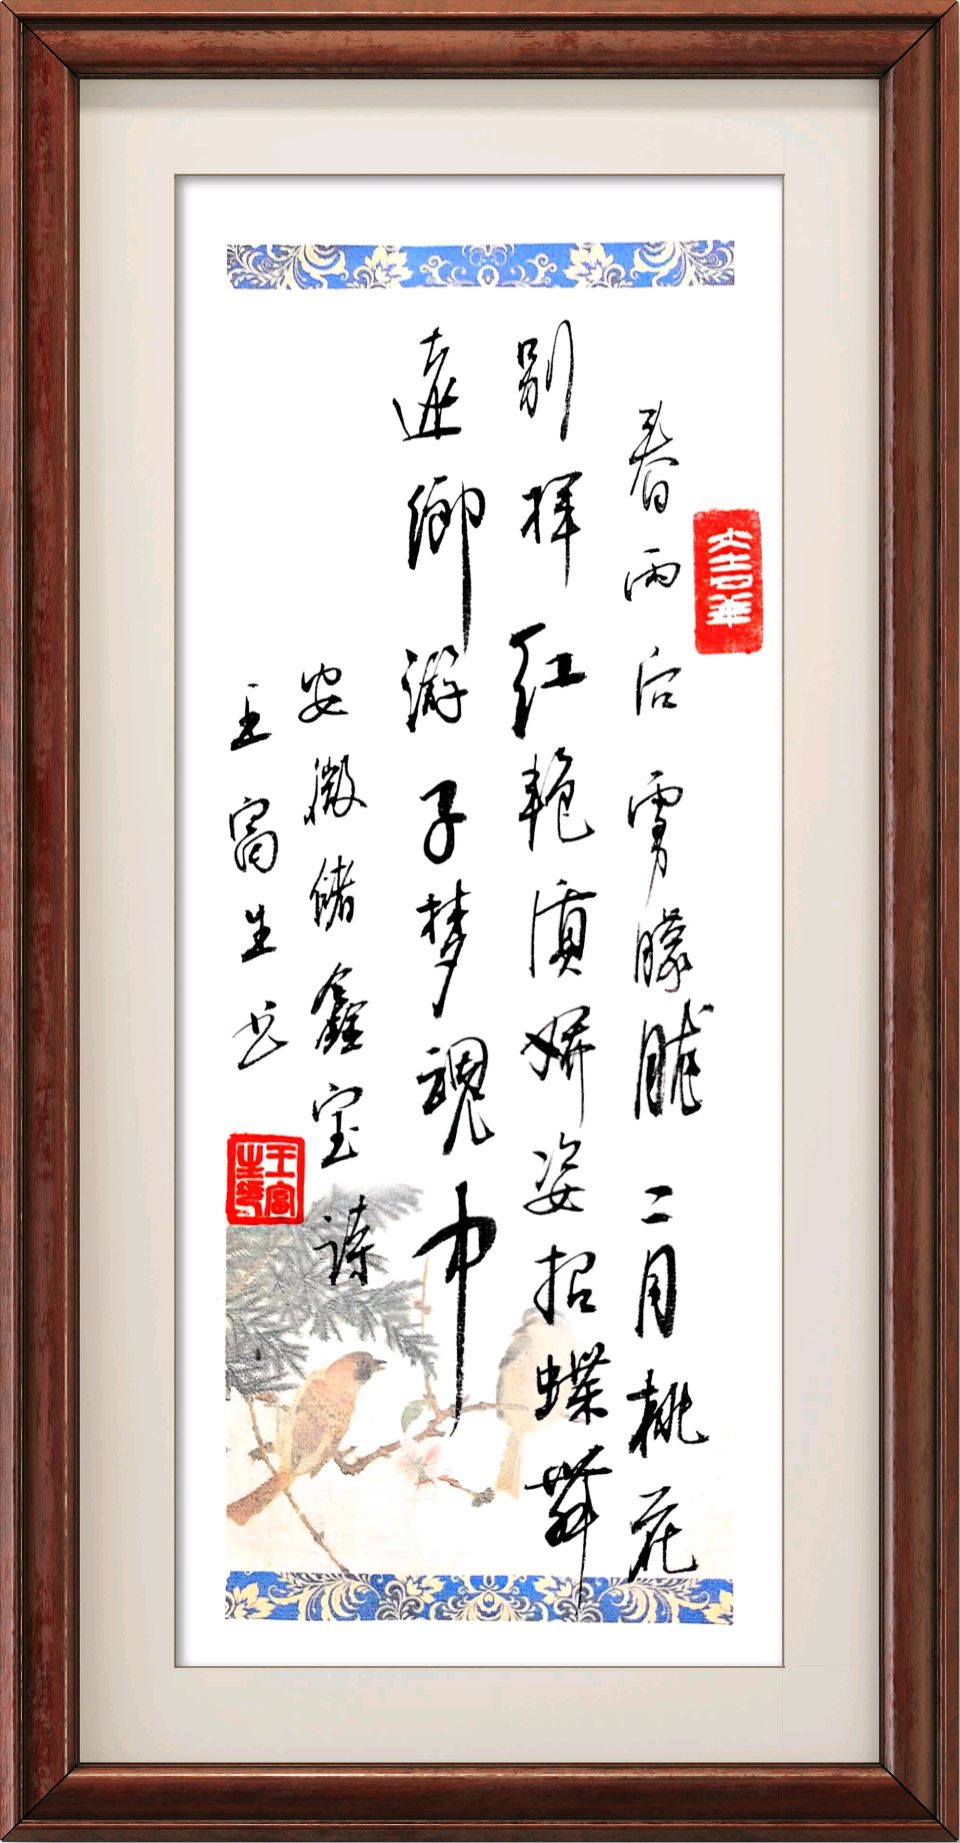 春雨后雾朦胧二月桃花
别样红艳质娇姿招蝶舞
遠鄉游子梦魂中
安徽储鑫宝诗
王富生书
王富生印